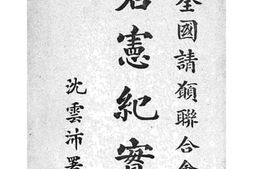 全國請願聯合會
君憲紀實
沈雲沛署